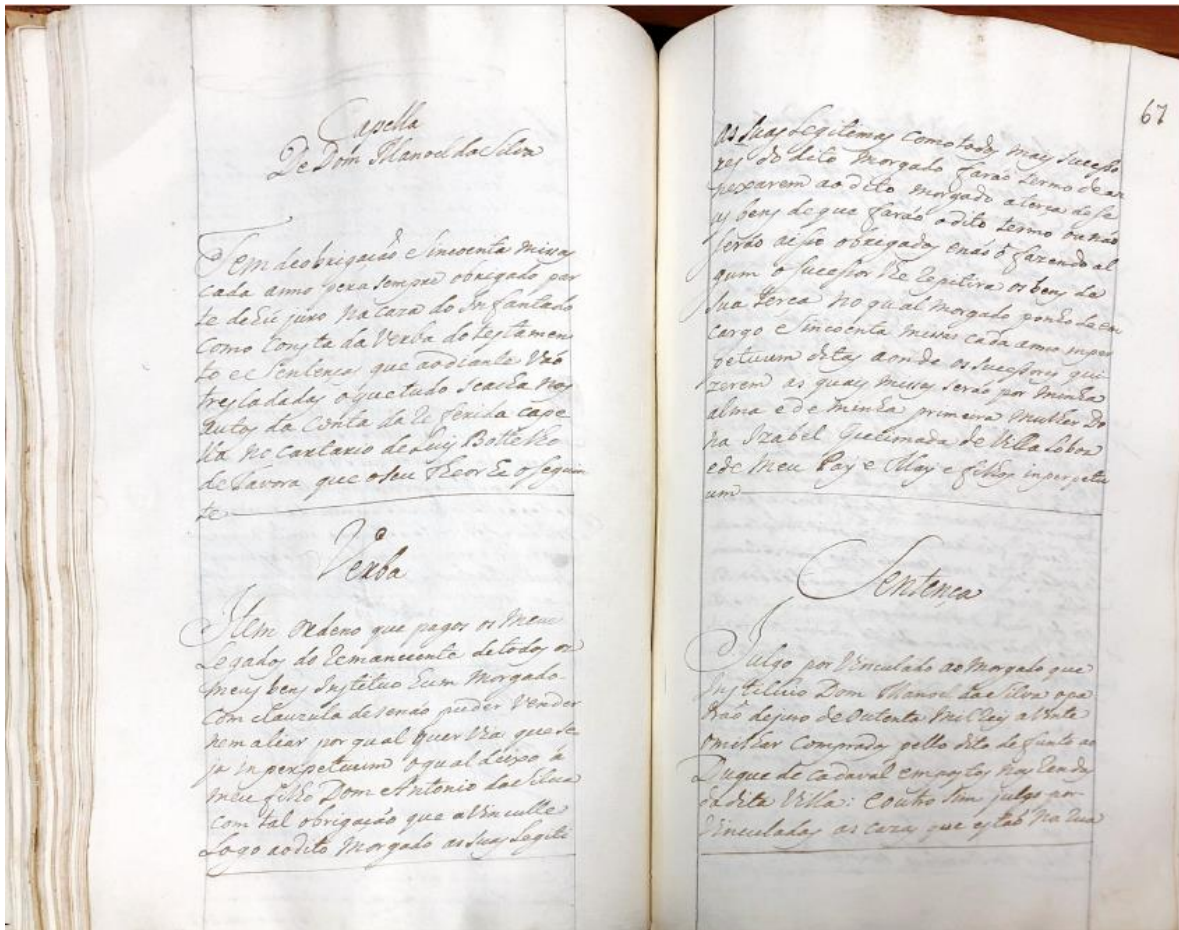 Capella
De Dom Manoel da Silva
Tem de obrigação e sincoenta missas
cada anno pera sempre obrigado por
te de hũ juro na caza do Infantado
como consta da verba do testamen
to e sentenças que ao diante vão
tresladadas o que tudo se acha nos
autos da conta da referida cape
lla no cartario de Luis Botelho
de Tavora que o seu theor he o seguin
te
Verba
Item ordeno que pagos os meus
Legados do remanecente de todos os
meus bens Instituo hum Morgado
com clauzula de senão puder vender
nem aliar por qual quer via que se
ja inperpetuum o qual deixo á
meu filho Dom Antonio da Silva
com tal obrigação que a vinculle
Logo ao dito Morgado as suas Legiti
67
as suas Legitimas como todos mais sucesso
res do dito Morgado farão termo de an
nexarem ao dito morgado a terça de se
us bens de que farão o dito termo ou não
serão a isso obrigados e não o fazendo al
gum o sucessor lhe repitira os bens da
sua terça no qual morgado ponho de en
cargo e sincoenta missas cada anno inper
petuum ditas aonde os sucessores qui
zerem as quais missas serão por minha
alma e de minha primeira mulher Do
na Izabel Queimada de Villa Lobos
e de meu Pay e May e filhos inperpetu
um
Sentença
Julgo por vinculado ao Morgado que
Instituio Dom Manoel da Silva o pa
drão de juro de outenta mil reis a vinte
o milhar comprados pello dito defunto ao
Duque de Cadaval empostos nas rendas
da dita Villa: e outro sim julgo por
vinculadas as cazas que estab na rua